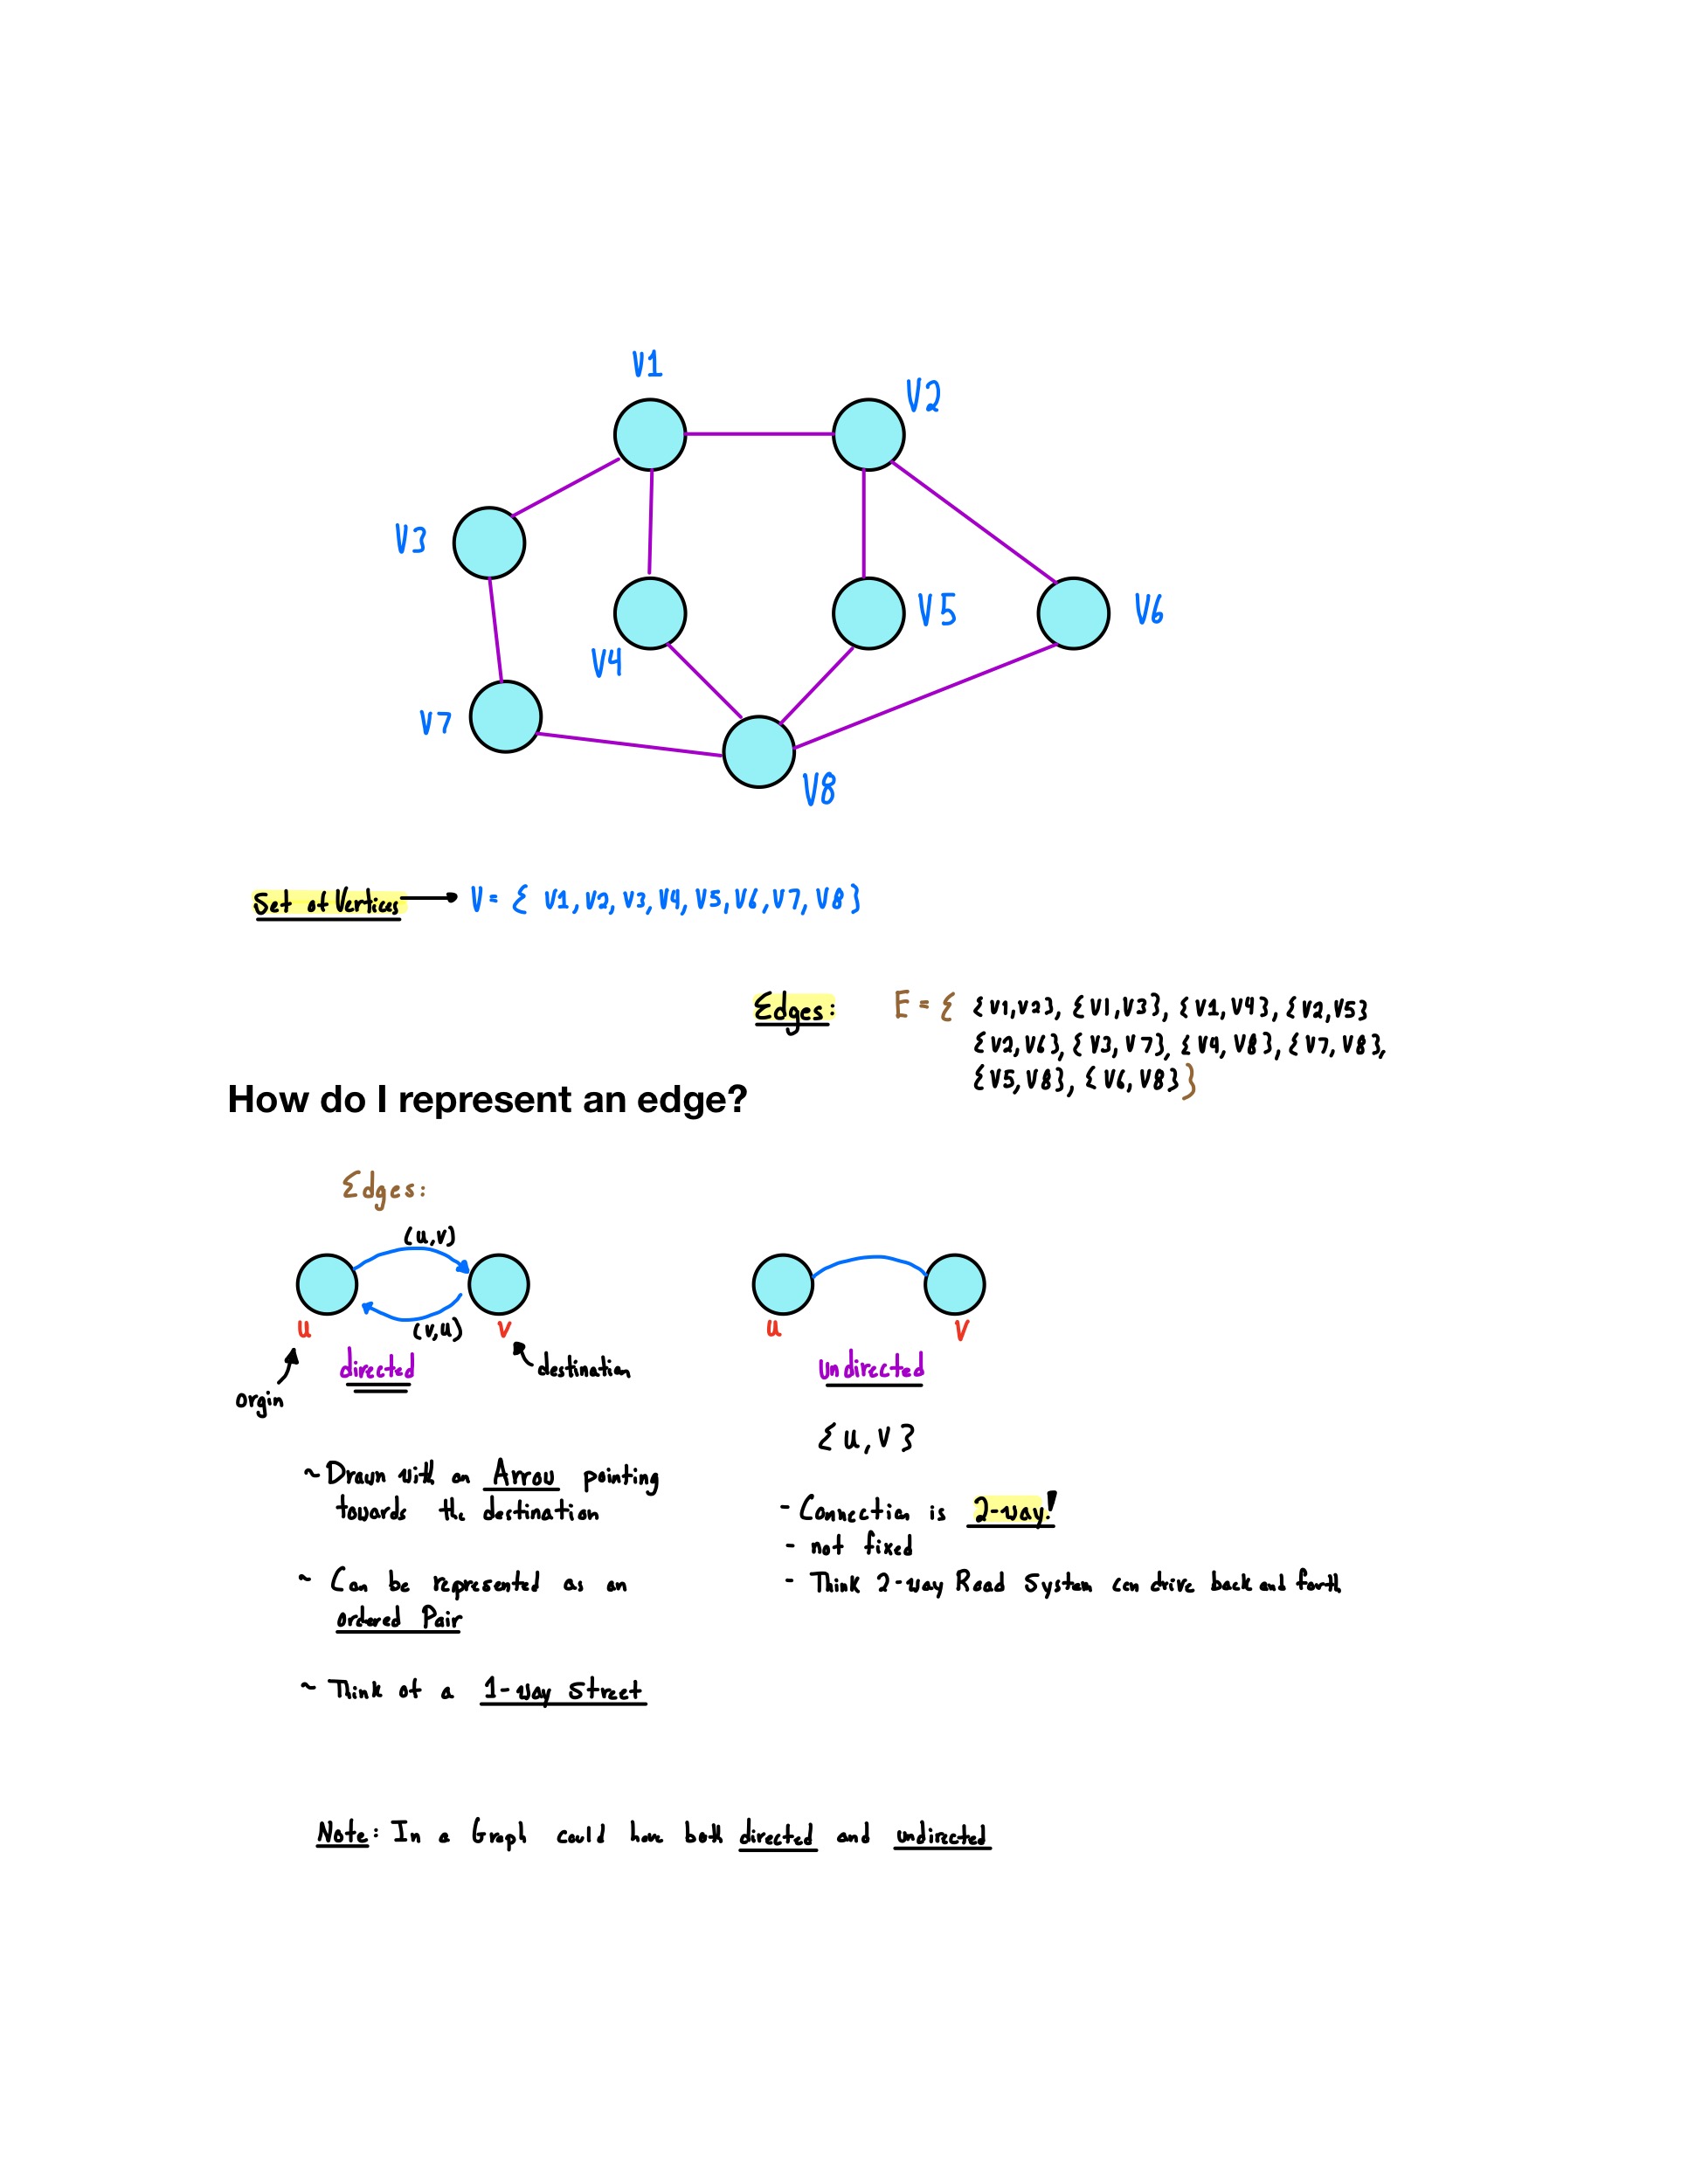 V1
V2
V3
V4
V5
V6
V7
V8
Set of Vertices V = { V1, V2, V3, V4, V5, V6, V7, V8 }
Edges: E = { {V1,V2}, {V1,V3}, {V1,V4}, {V2,V5}
{V2,V6}, {V3,V7}, {V4,V8}, {V7,V8},
{V5,V8}, {V6,V8} }
How do I represent an edge?
Edges:
(u,v)
(v,u)
u
v
directed
orgin
destination
~ Drawn with an Arrow pointing
towards the destination
~ Can be represented as an
ordered Pair
~ Think of a 1-way street
u
v
undirected
{u,v}
- Connection is 2-way!
- not fixed
- Think 2-way Road System can drive back and forth
Note: In a Graph could have both directed and undirected